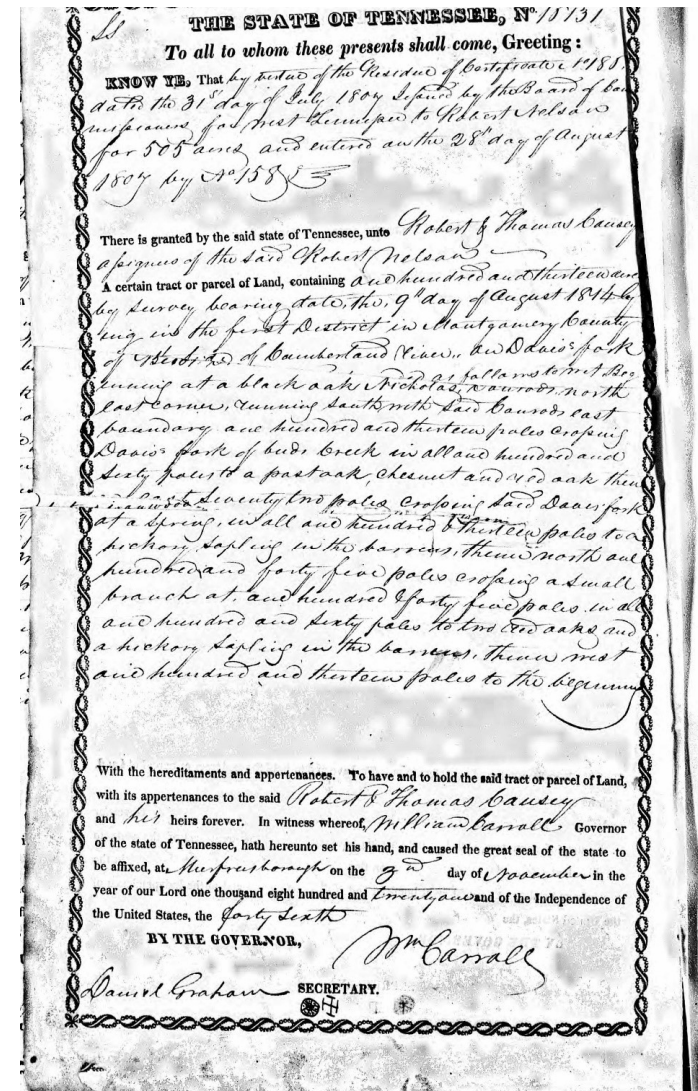 THE STATE OF TENNESSEE, No. 18731
Ss
To all to whom these presents shall come, Greeting:
KNOW YE, That by virtue of the Residue of Certificate No 188
dated the 31st day of July 1807 Issued by the Board of Com
missioners for West Tennessee to Robert Nelson
for 505 acres and entered on the 28th day of August
1807 by No 158
There is granted by the said state of Tennessee, unto Robert & Thomas Causey
assignees of the said Robert Nelson
A certain tract or parcel of Land, containing one hundred and thirteen acres
by survey bearing date, the, 9th day of August 1814 ly
ing in the first District in Montgomery County
of Cumberland River, on Davis fork
as follows to wit Beg
inning at a black oak Nicholas Conrods north
east corner, running south with said Conrods east
boundary one hundred and thirteen poles crossing
Davis fork of buds Creek in all one hundred and
sixty poles to a post oak, chesnut and red oak then
east seventy two poles crossing said Davis fork
at a spring, in all one hundred & thirteen poles to a
hickory sapling in the barrens, thence north one
hundred and forty five poles crossing a small
branch at one hundred & forty five poles in all
one hundred and sixty poles to two red oaks and
a hickory sapling in the barrens, thence west
one hundred and thirteen poles to the beginning
With the hereditaments and appertenances. To have and to hold the said tract or parcel of Land,
with its appertenances to the said Robert & Thomas Causey
and his heirs forever. In witness whereof, William Carroll Governor
of the state of Tennessee, hath hereunto set his hand, and caused the great seal of the state to
be affixed, at Murfreesborough on the 3rd day of November in the
year of our Lord one thousand eight hundred and twenty one and of the Independence of
the United States, the forty sixth
BY THE GOVERNOR,
Wm Carroll
Daniel Graham SECRETARY.